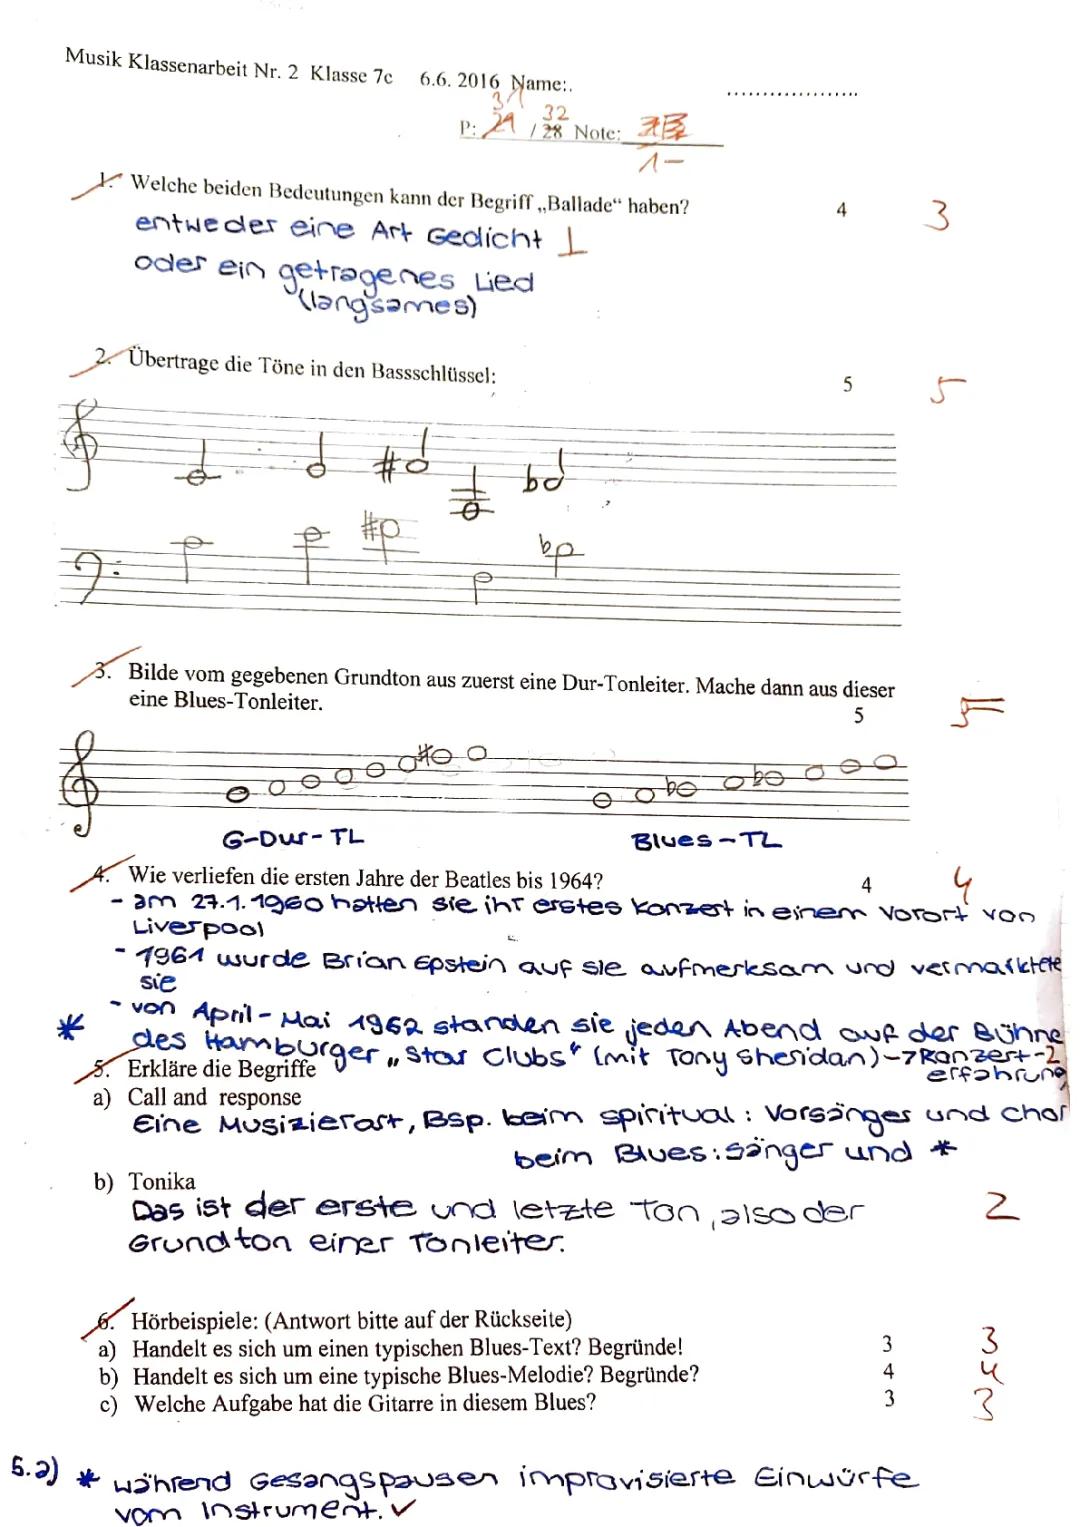 Musik Klassenarbeit Nr. 2 Klasse 7c 6.6. 2016 Name:. ...................
31 32
P: 29 / 28 Note:
1-
1. Welche beiden Bedeutungen kann der Begriff „Ballade“ haben? 4 3
entweder eine Art Gedicht 1
oder ein getragenes Lied
(langsames)
2. Übertrage die Töne in den Bassschlüssel: 5 5
3. Bilde vom gegebenen Grundton aus zuerst eine Dur-Tonleiter. Mache dann aus dieser
eine Blues-Tonleiter. 5 5
G-Dur-TL Blues-TL
4. Wie verliefen die ersten Jahre der Beatles bis 1964? 4 4
- am 27.1.1960 hatten sie ihr erstes Konzert in einem Vorort von
Liverpool
- 1961 wurde Brian Epstein auf sie aufmerksam und vermarktete
sie
- von April - Mai 1962 standen sie jeden Abend auf der Bühne
* des Hamburger „Star Clubs“ (mit Tony Sheridan) → Konzert-
erfahrung
5. Erkläre die Begriffe 2
a) Call and response
Eine Musizierart, Bsp. beim spiritual: Vorsänger und Chor
beim Blues: Sänger und *
b) Tonika
Das ist der erste und letzte Ton, also der 2
Grundton einer Tonleiter.
6. Hörbeispiele: (Antwort bitte auf der Rückseite)
a) Handelt es sich um einen typischen Blues-Text? Begründe! 3 3
b) Handelt es sich um eine typische Blues-Melodie? Begründe? 4 4
c) Welche Aufgabe hat die Gitarre in diesem Blues? 3 3
5.a) * während Gesangspausen improvisierte Einwürfe
vom Instrument. ✓